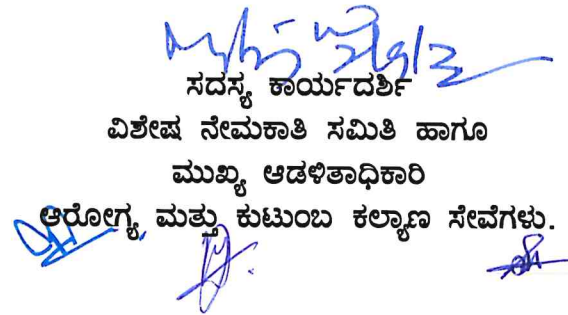 ಸದಸ್ಯ ಕಾರ್ಯದರ್ಶಿ
ವಿಶೇಷ ನೇಮಕಾತಿ ಸಮಿತಿ ಹಾಗೂ
ಮುಖ್ಯ ಆಡಳಿತಾಧಿಕಾರಿ
ಆರೋಗ್ಯ ಮತ್ತು ಕುಟುಂಬ ಕಲ್ಯಾಣ ಸೇವೆಗಳು.